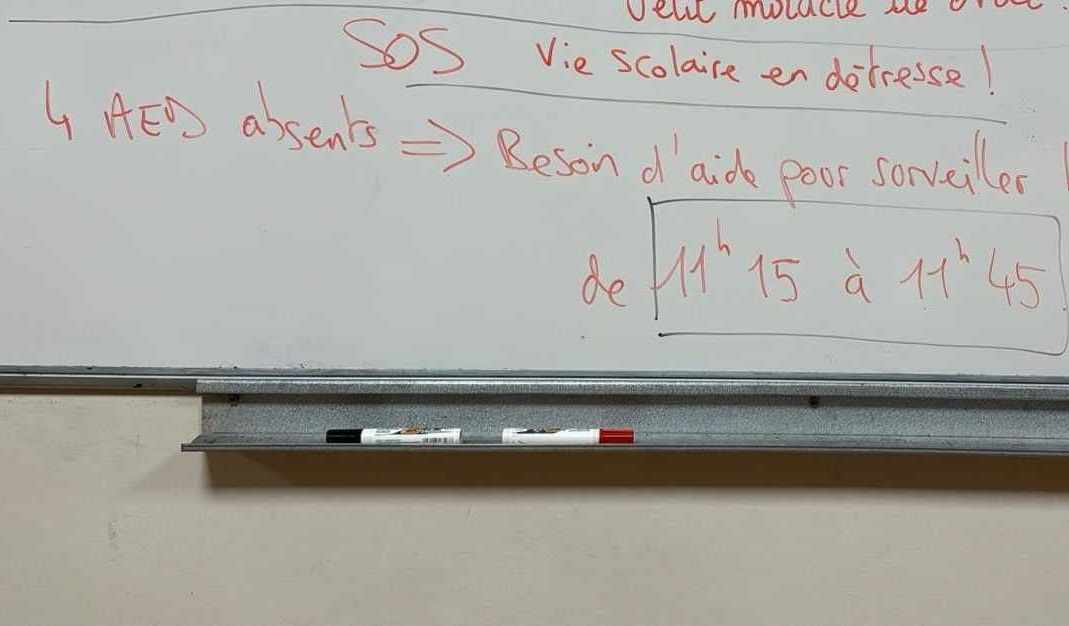 SOS Vie scolaire en détresse !
4 AED absents => Besoin d'aide pour surveiller
de 11h15 à 11h45